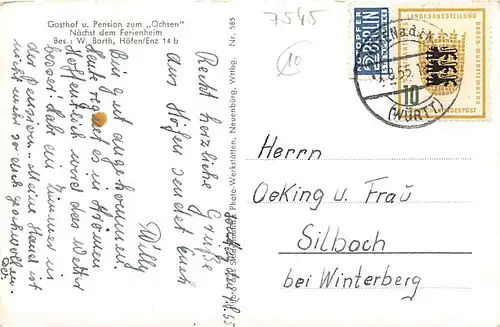 Gasthof u. Pension zum „Ochsen"
Nächst dem Ferienheim
Bes.: W. Barth, Höfen/Enz 14 b
Nr. 585
Photo-Werkstätten, Neuenbürg, Wttbg.
7545
10
Recht herzliche Grüße
aus Höfen sendet Euch
Willy
Bin gut angekommen.
Heute regnet es in Strömen
Hoffentlich wird das Wetter
besser. Habe ein Zimmer in
der Pension. Meine Hand ist
nicht mehr so dick geschwollen.
Herrn
Oeking u. Frau
Silbach
bei Winterberg
NOTOPFER
2 BERLIN
STEUERMARKE
LANDESAUSSTELLUNG
BADEN-WÜRTTEMBERG
10
DEUTSCHE BUNDESPOST
(WÜRTT)